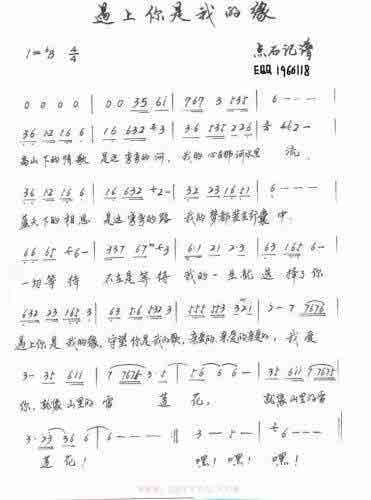 遇上你是我的缘
1=♭B 4/4
点石记谱
EQQ 1966118
0 0 0 0 | 0 0 35 61 | 767 3 535 | 6 - - -
36 12 16 6 | 16 632 - 3 | 36 535 226 | 462 -
高山下的情歌 是这弯弯的河, 我的心在那河水里 流,
36 12 16 6 | 16 632 +2 - | 32 23 16 51 | 6 - - -
蓝天下的相思 是这弯弯的路 我的梦都装在行囊 中,
66 65 - 6 - | 337 67 - 3 | 61 21 2·3 | 63 165 6 -
一切等待 不在是等待 我的一生就选择了你
632 23 165 3 | 63 56 532 3 | 555 553 321 | 2 - 7 7676
遇上你是我的缘, 守望你是我的歌, 亲爱的亲爱的亲爱的, 我爱
3 - 35 611 | 7 7676 3·5 | 56 6 6 - | 35 611 7 7675
你, 就像山里的雪 莲花, 就像山里的雪
3·23 36 6 | 6 - - - || 3 - 5 - | 6 - - -
莲花! 嘿! 嘿! 嘿!